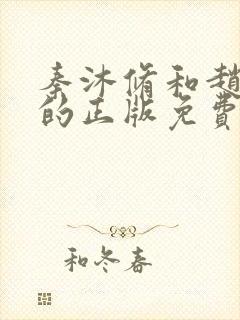 秦沐脩和趙
的正版免費
和冬春